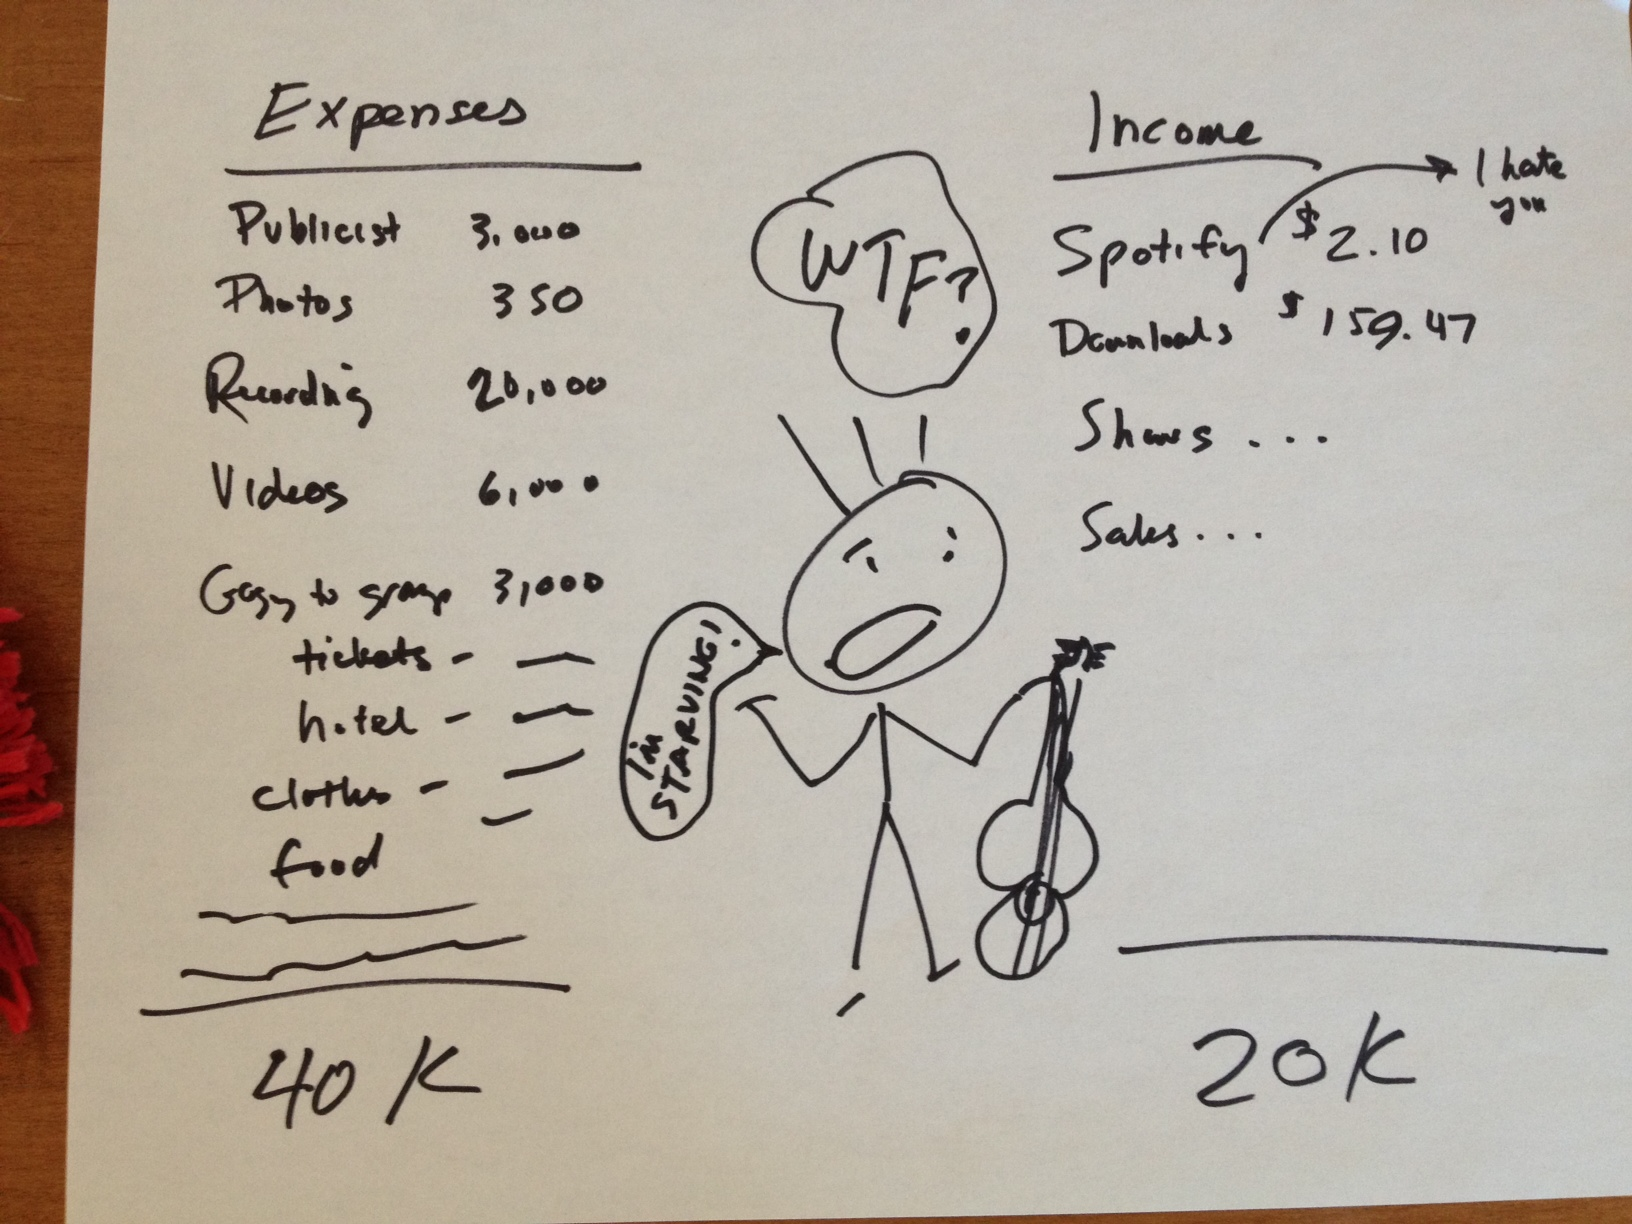 Expenses
Publicist 3,000
Photos 350
Recording 20,000
Videos 6,000
to group 3,000
tickets -
hotel -
clothes -
food
40 K
WTF?
I'm STARVING!
Income
Spotify $2.10
I hate you
Downloads $159.47
Shows ...
Sales ...
20K